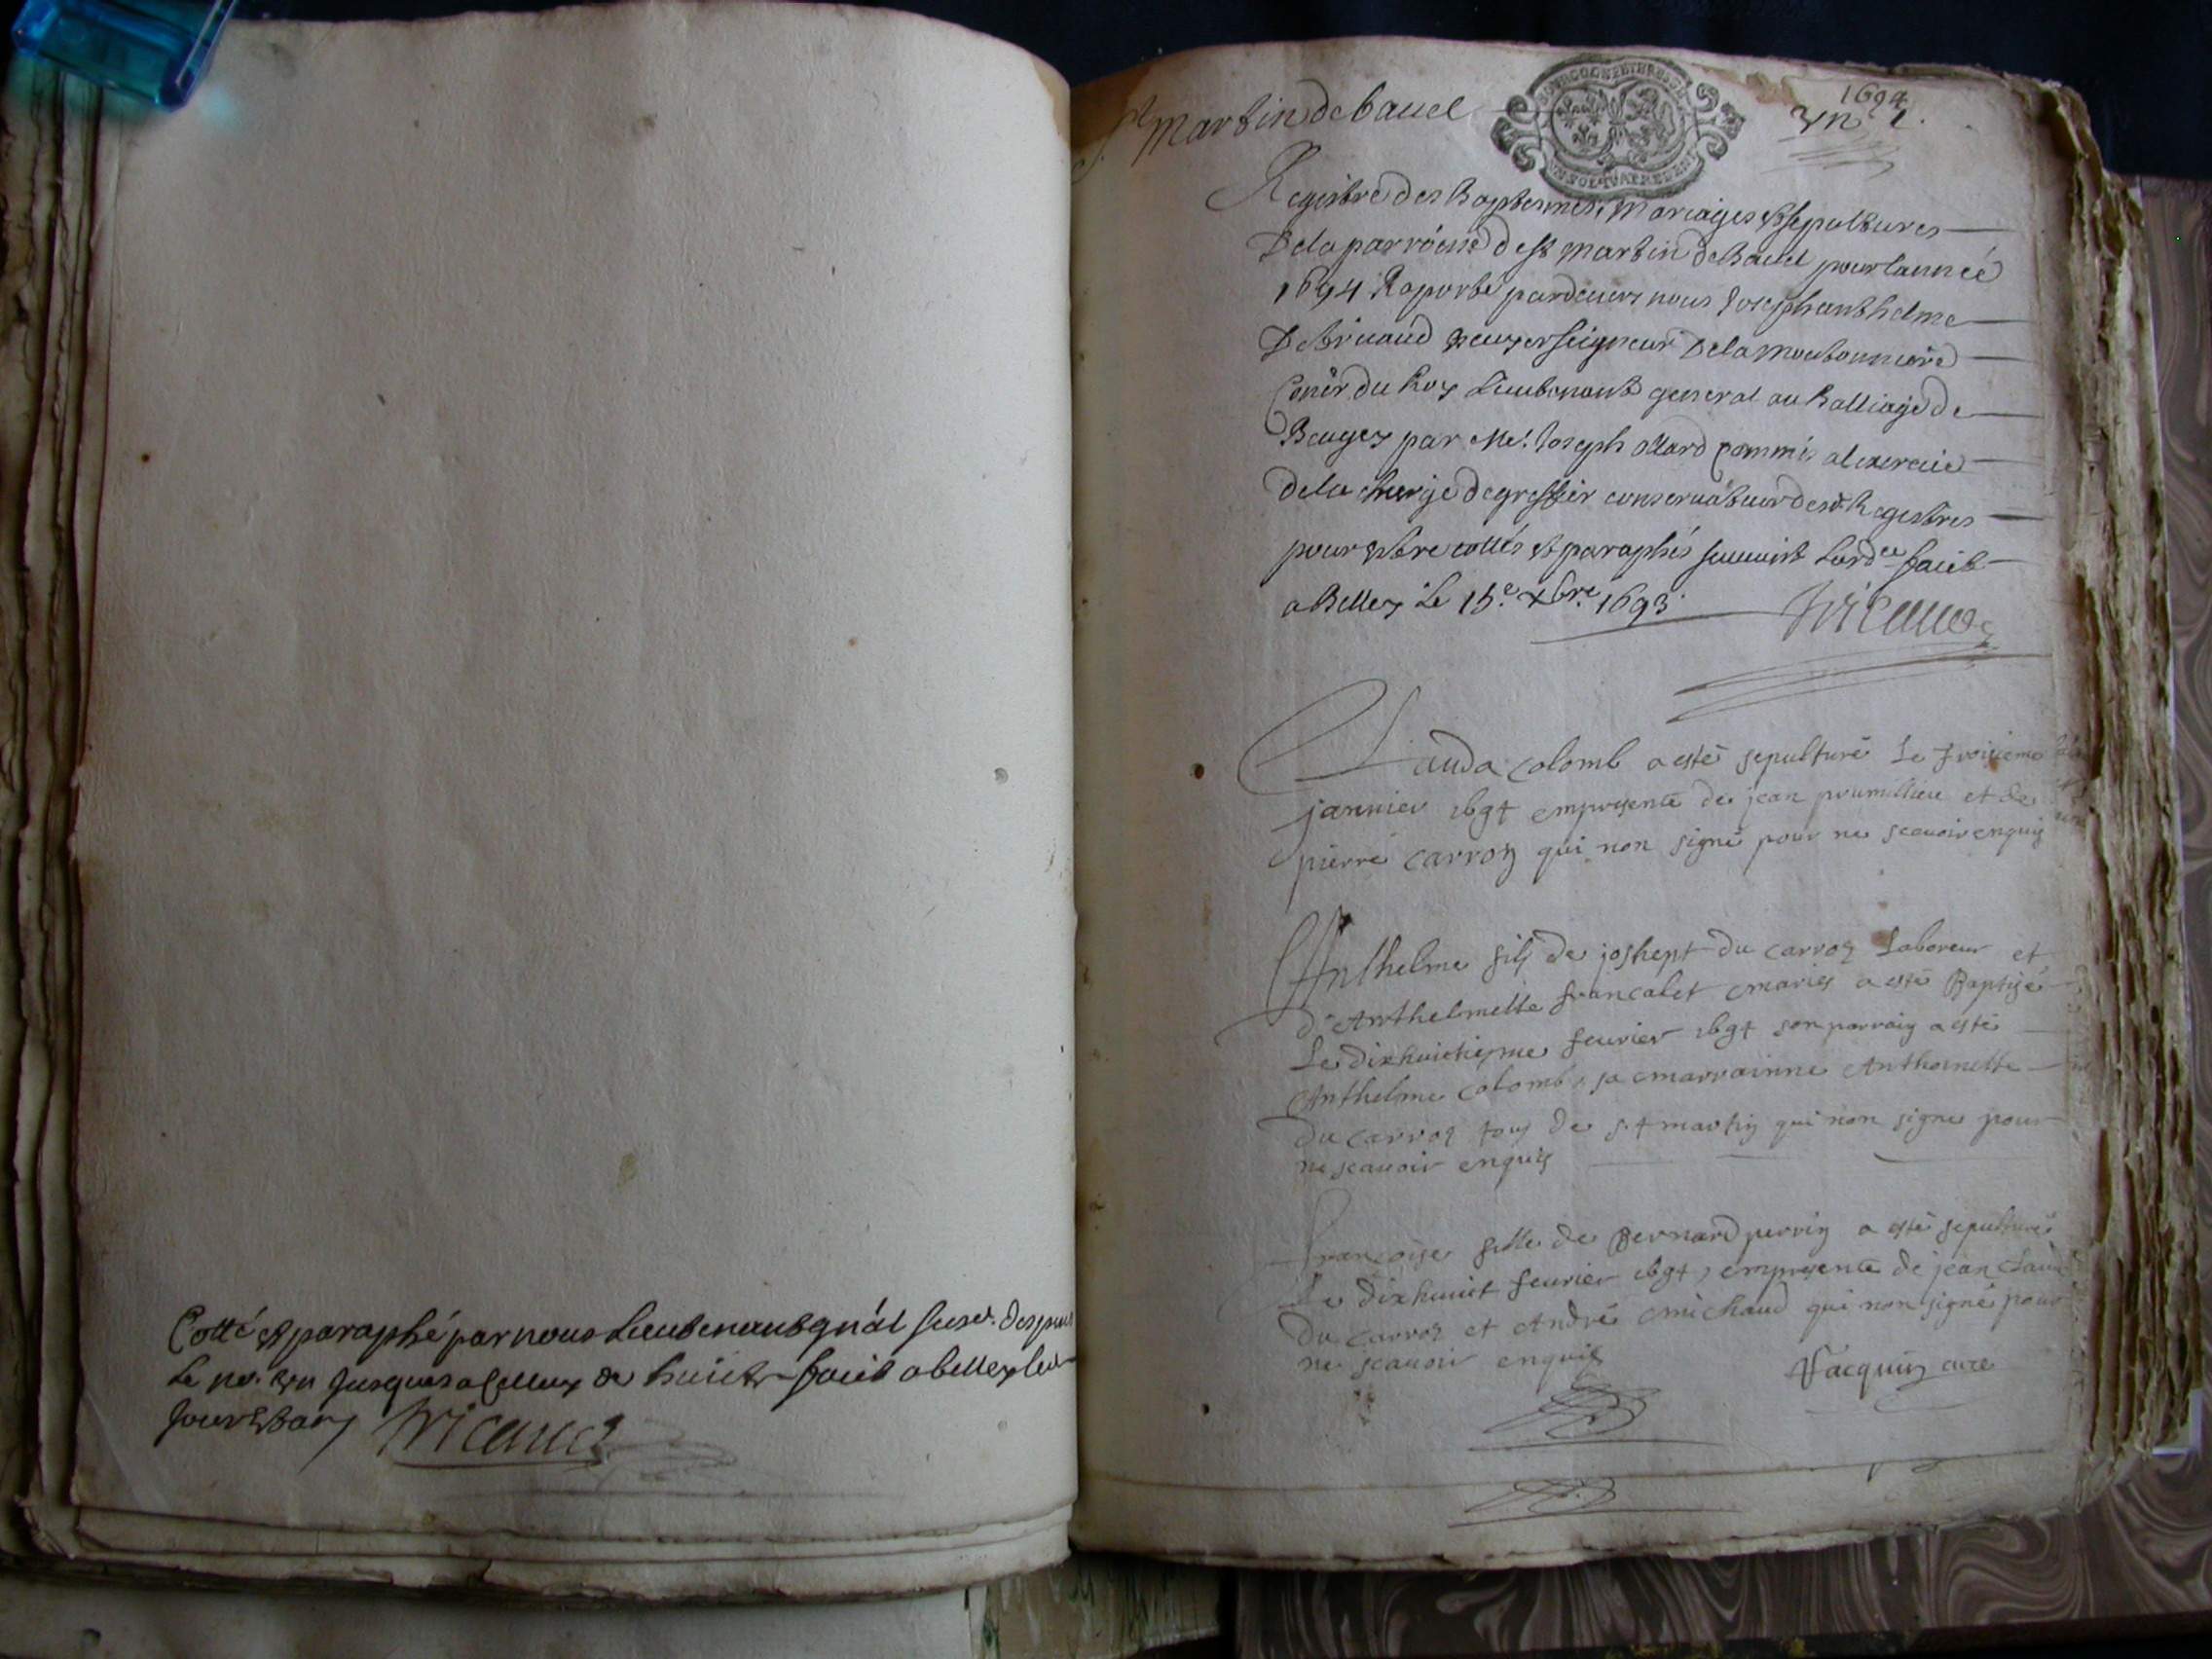 Cotté et paraphé par nous Lieutenant gnâl susd. despuis
Le no. un jusques a celluy de huict faict a belley les
jour et an Tricaud
St Martin de bauel
1694
un 1.
Registre des Baptesmes, Mariages et sepultures
De la parroisse de st martin de Bauel pour lannée
1694 Raporté pardeuers nous Joseph anthelme
De tricaud escuyer seigneur De la moutonniere
Coner du Roy Lieutenant general au Balliage de
Beugey par Me. Joseph ollard commis a lexercice
de la charge de greffier conseruateur desd. Registres
pour estre cottés et paraphés suiuant lordce faict
a Belley Le 15.e xbre. 1693.
Tricaud
Clauda colomb a esté sepulturé Le troisieme
januier 1694 empresence de jean prumillieu et de
pierre carroz qui non signé pour ne scauoir enquis
Anthelme fils de joshept du carroz Laboreur et
d'Anthelmette francalet mariés a esté Baptisé
Le dixhuictiesme feurier 1694 son parrain a esté
Anthelme colomb, sa marrainne Anthoinette
du carroz tous de st martin qui non signe pour
ne scauoir enquis
francoise fille de Bernard perrin a esté sepulturé
Le dixhuict feurier 1694, empresence de jean claude
du carroz et André michaud qui non signé pour
ne scauoir enquis
Jacquin curé